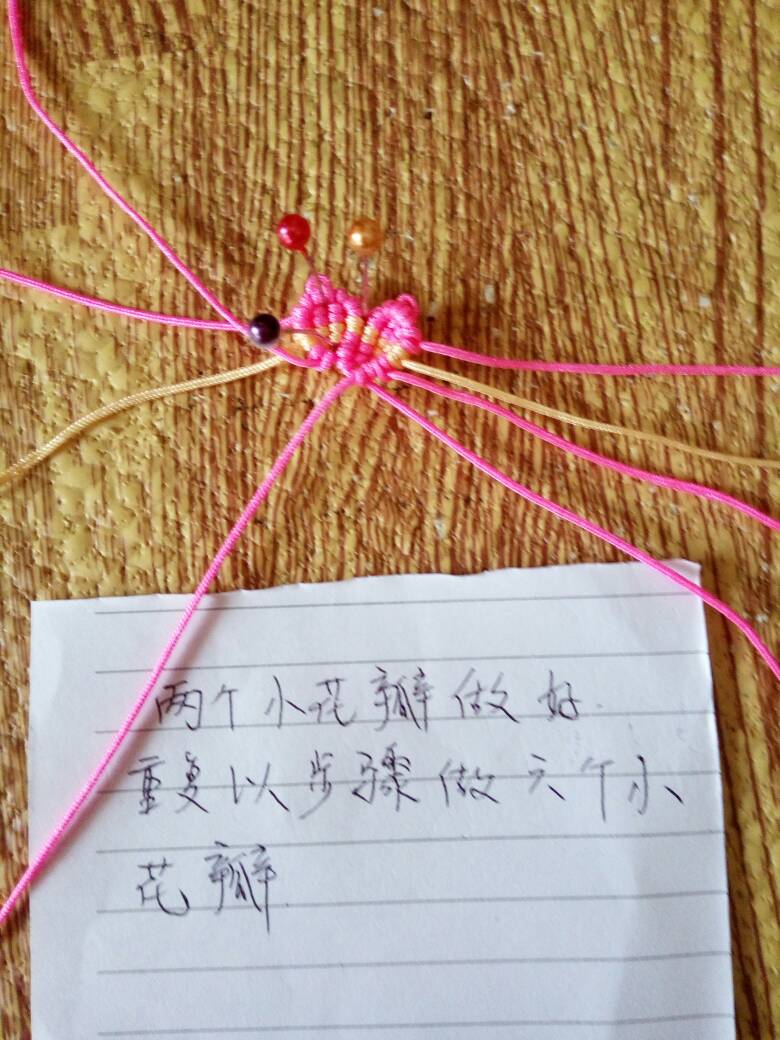 两个小花瓣做好.
重复以步骤做六个小
花瓣